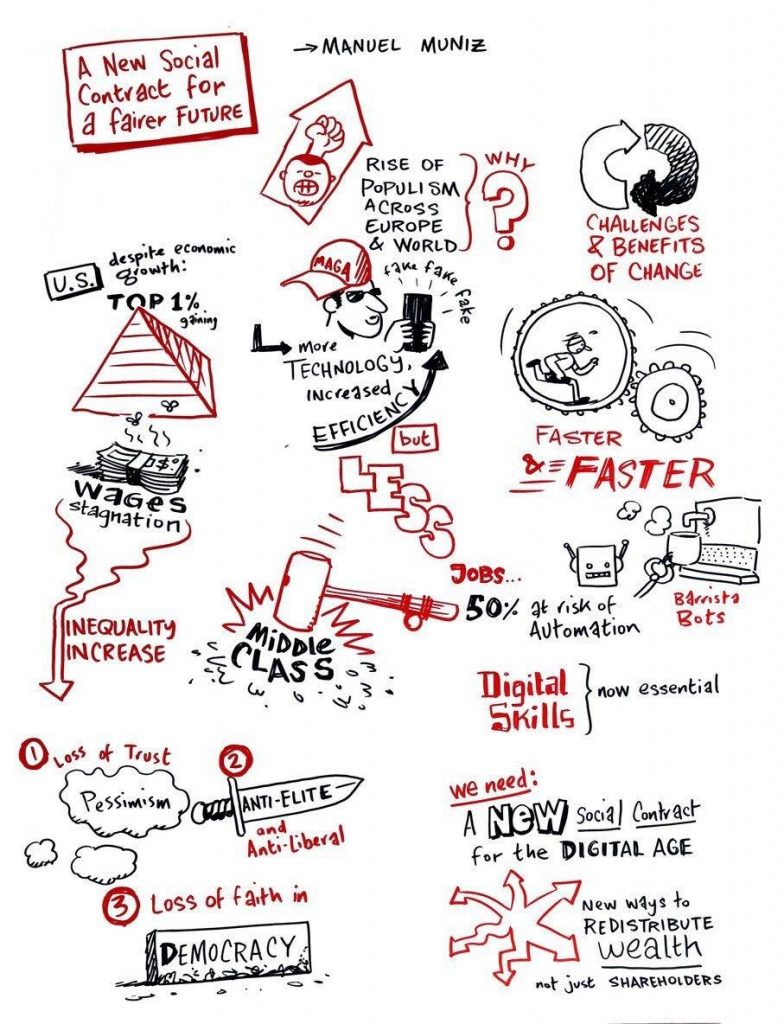 A New Social
Contract for
a fairer FUTURE
→ MANUEL MUNIZ
RISE OF
POPULISM
ACROSS
EUROPE
& WORLD
WHY
?
CHALLENGES
& BENEFITS
OF CHANGE
U.S.
despite economic
growth:
TOP 1%
gaining
MAGA
fake fake fake
more
TECHNOLOGY,
increased
EFFICIENCY
but
LESS
JOBS...
FASTER
& FASTER
$
WAGES
stagnation
INEQUALITY
INCREASE
MIDDLE
CLASS
50% at risk of
Automation
Barrista
Bots
Digital
Skills
now essential
1 Loss of Trust
Pessimism
2
ANTI-ELITE
and
Anti-Liberal
3 Loss of faith in
DEMOCRACY
we need:
A NEW Social Contract
for the DIGITAL AGE
New ways to
REDISTRIBUTE
wealth
not just SHAREHOLDERS